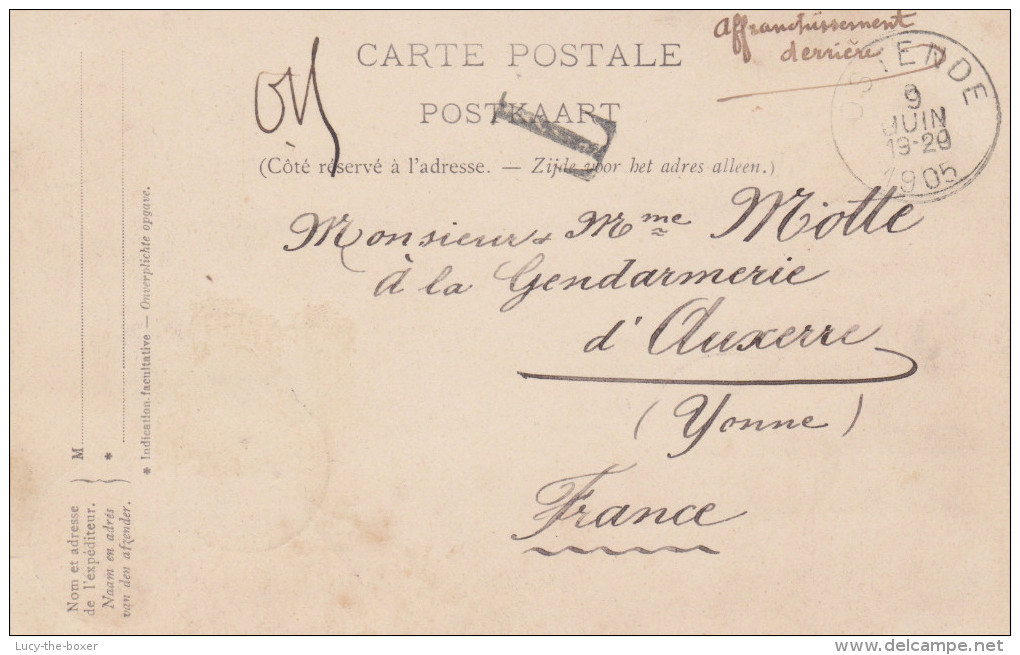 Affranchissement
derrière
CARTE POSTALE
POSTKAART
T
(Côté réservé à l'adresse. — Zijde voor het adres alleen.)
OSTENDE
9
JUIN
19-20
1905
Monsieur & Mme Motte
à la Gendarmerie
d'Auxerre
(Yonne)
France
Nom et adresse
de l'expéditeur.
Naam en adres
van den afzender.
M
*
* Indication facultative — Onverplichte opgave.
Lucy-the-boxer
delcampe.net